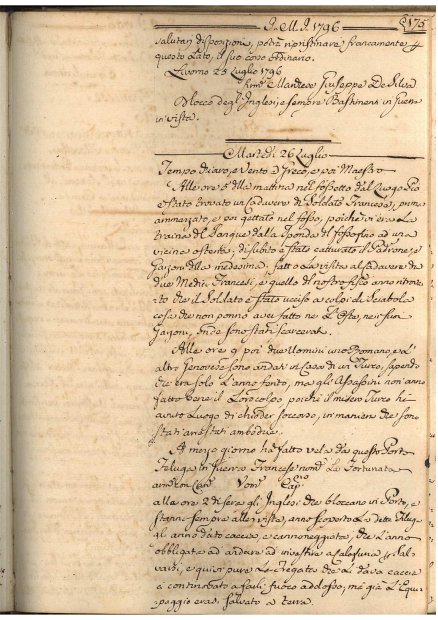 J. M. J. 1796 175
salutari disposizioni, potrà ripristinare francamente p
questo Lato, il suo corso ordinario.
Livorno 25 Luglio 1796
Giuseppe De Silva
Blocco degl'Inglesi, e sempre Bastimenti in guerra
in vista.
Martedì 26 Luglio
Tempo chiaro, e Vento Greco, e poi Maestro
Alle ore 5 della mattina nel fossetto dal Luogo Pio
è stato trovato un Cadavere di Soldato Francese, prima
ammazzato, e poi gettato nel fosso, poichè vi era la
traina del Sangue dalla sponda del fosso fino ad una
vicina osteria; di subito è stato catturato il Padrone, e
Garzon della medesima, fatto la visita al Cadavere da
due Medici Francesi, e quello del nostro fisco anno
che il Soldato è stato ucciso a colpi di Sciabola
cosa che non ponno aver fatto ne L'Oste, ne i suoi
Garzoni, onde sono stati scarcerati.
Alle ore 9 poi due Uomini uno Romano, e l'
altro Genovese sono andati in Casa di un Turco, sapendo
che era solo L'anno ferito, ma gli Assassini non anno
fatto bene il Loro colpo, poichè il misero Turco hà
avuto Luogo di chieder soccorso, in maniera che sono
stati arrestati ambedue.
A mezzo giorno hà fatto vela da questo Porto
Feluga in Guerra Francese nom. La Fortunata
con Uom. Cap.
alle ore 2 di sera gli Inglesi che bloccano in Porto, e
stanno sempre alla vista, anno scoperto La detta Felug.
gli anno dato caccia, e cannoneggiata, che L'anno
obbligata ad andare ad investire a p Sal-
varsi, e quivi pure La Fregata che Li dava caccia
è continovato a farli fuoco addosso, mà già L'Equi-
paggio erasi salvato a terra.